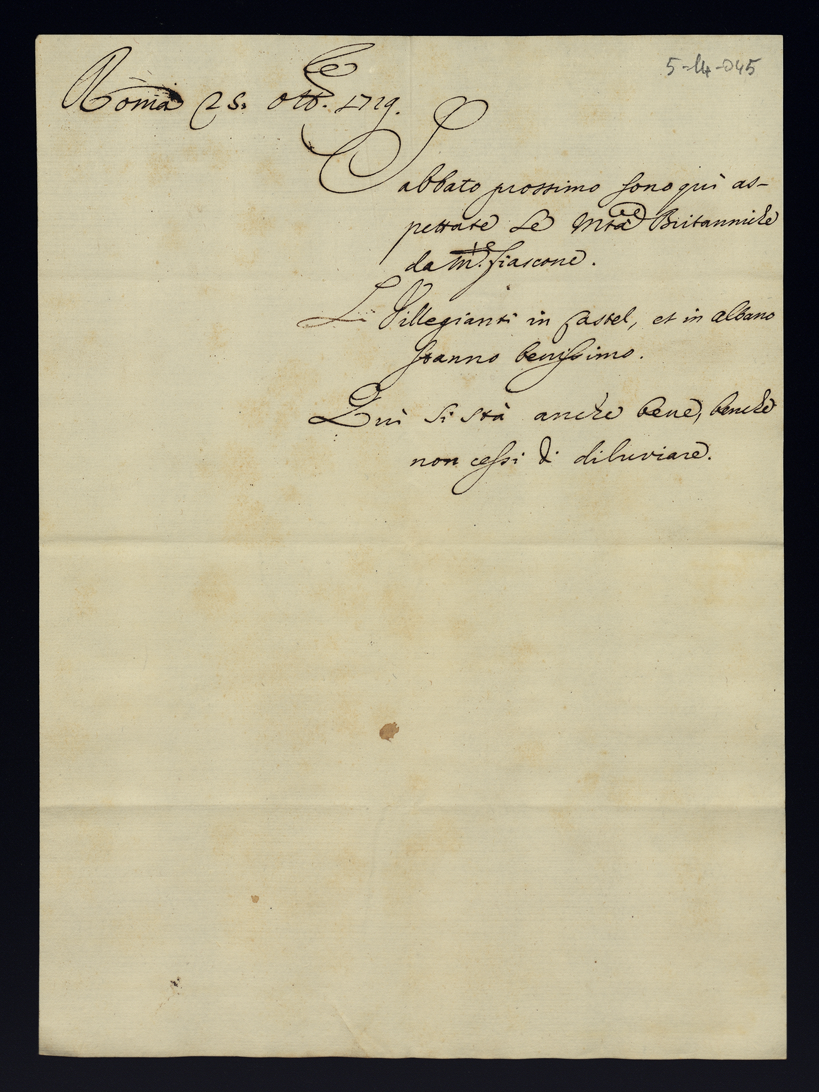 5-14-045
Roma 25. Ottbre. 1719.
Sabbato prossimo sono quì as-
pettate Le Mtà Britanniche
da M.te fiascone.
Li Villegianti in Castel, et in Albano
stanno benissimo.
Quì si stà anche bene, benche
non cessi di diluviare.